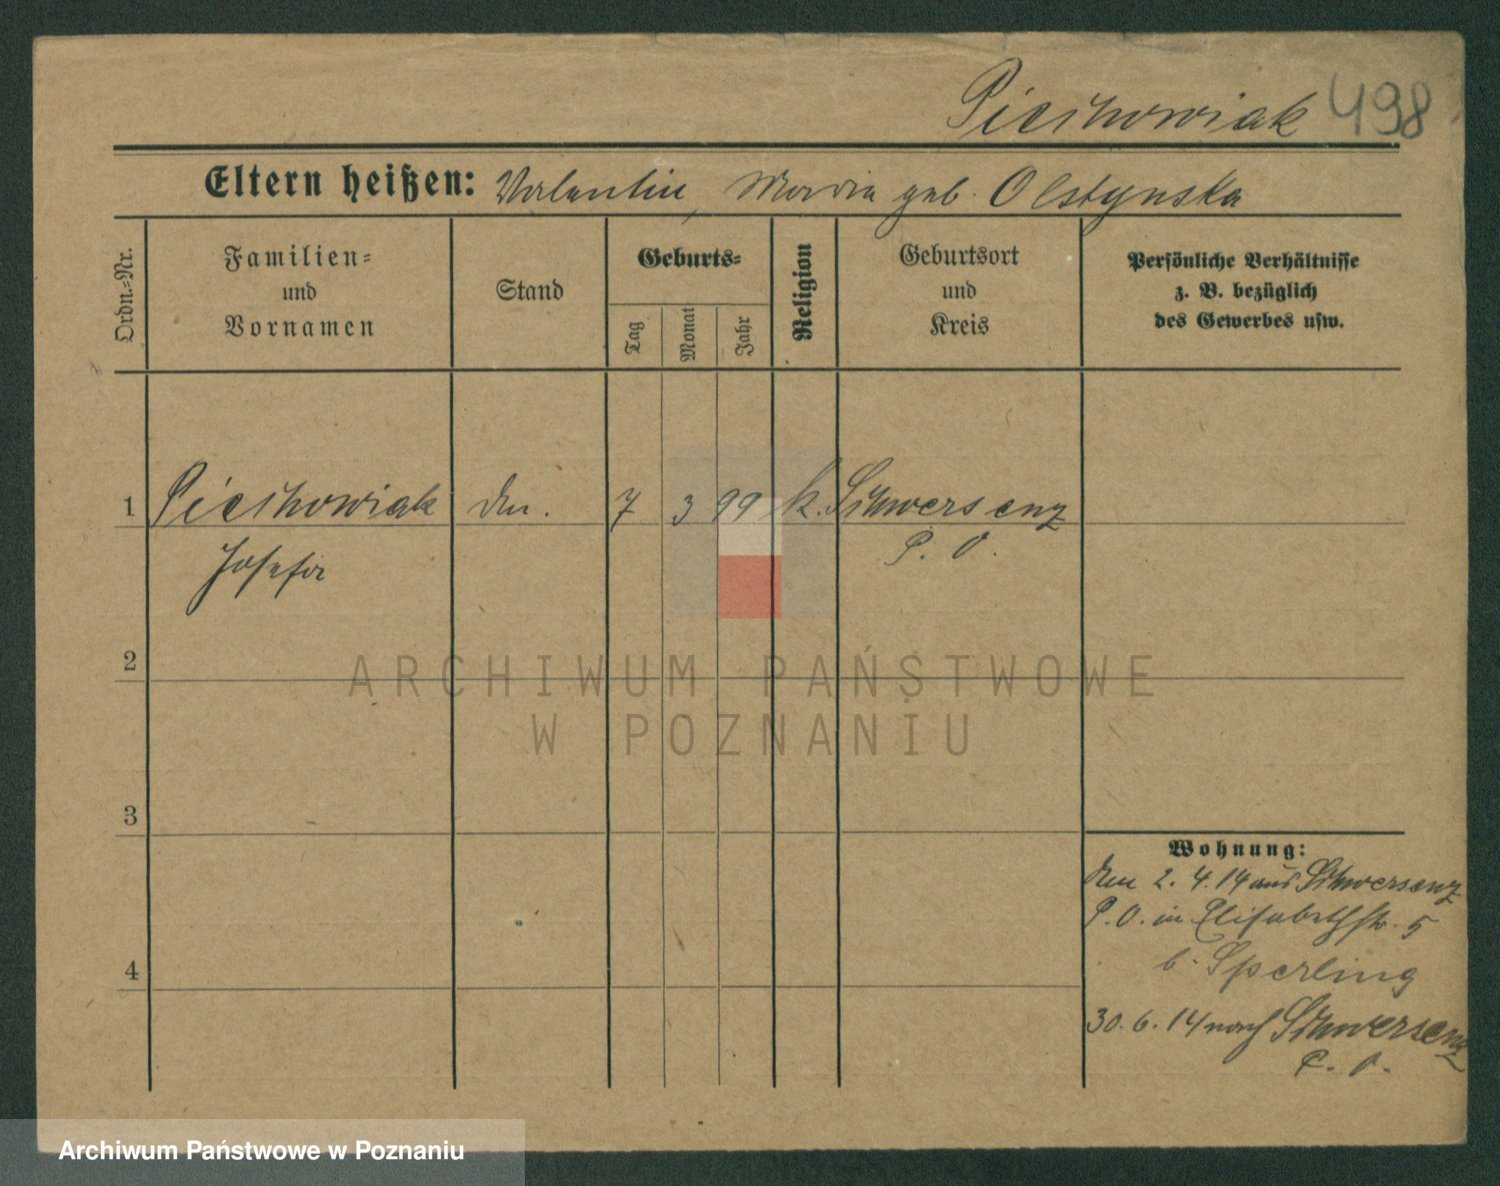 Piechowiak 498
Eltern heißen: Valentin, Maria geb. Olstynska
Ordn.-Nr.
Familien-
und
Vornamen
Stand
Geburts-
Tag
Monat
Jahr
Religion
Geburtsort
und
Kreis
Persönliche Verhältnisse
z. B. bezüglich
des Gewerbes usw.
1 Piechowiak 7 3 99 k. Schwersenz
Josefa P. O.
2
3
4
Wohnung:
2. 4. 14 aus Schwersenz
P. O. in Elisabethstr. 5
b. Sperling
30. 6. 14 nach Schwersenz
P. O.
ARCHIWUM PAŃSTWOWE
W POZNANIU
Archiwum Państwowe w Poznaniu